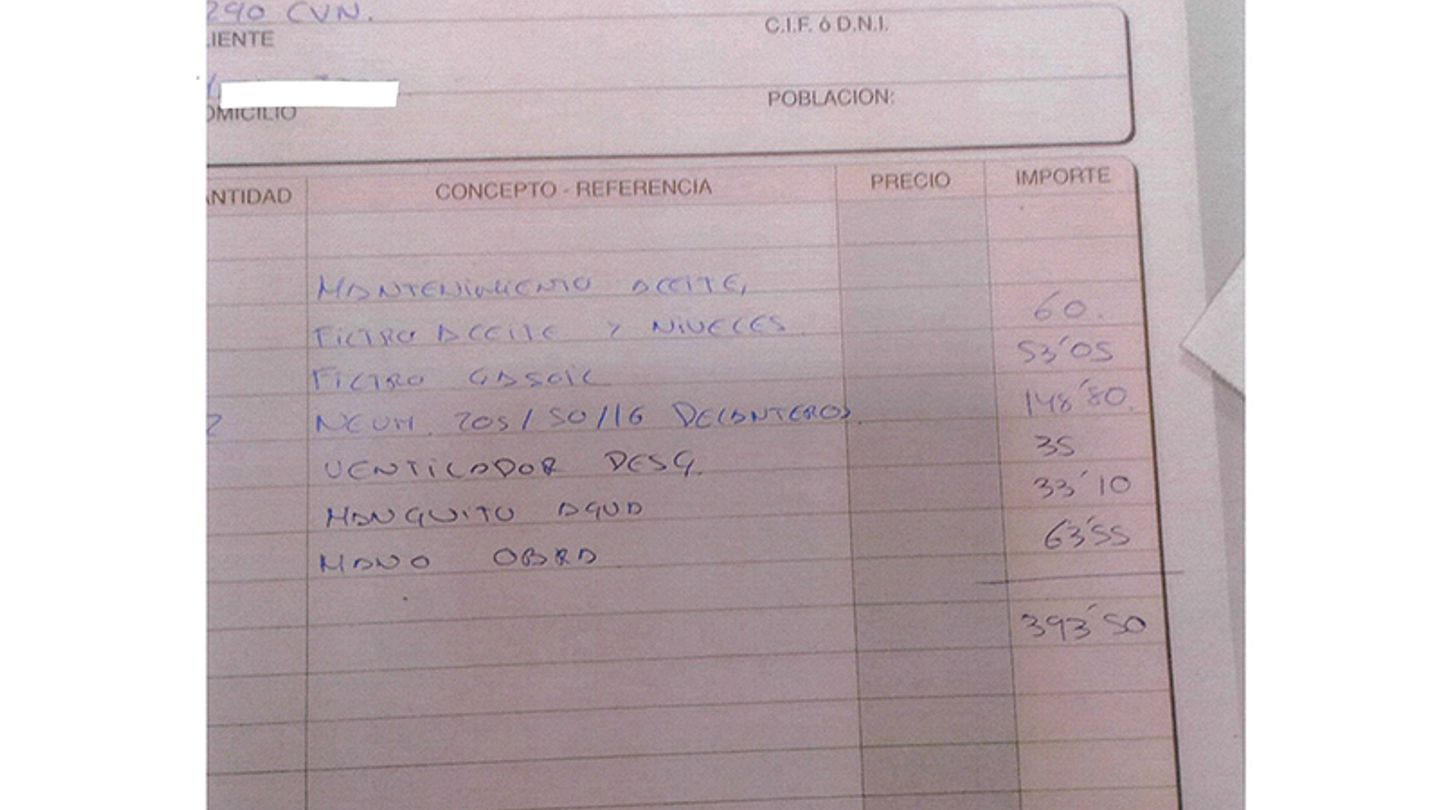 290 CVN.
LIENTE C.I.F. ó D.N.I.
OMICILIO POBLACION:
ANTIDAD CONCEPTO - REFERENCIA PRECIO IMPORTE
MANTENIMIENTO ACEITE,
FILTRO ACEITE Y NIVELES 60.
FILTRO GASOIL 53'05
2 NEUM. 205/50/16 DELANTEROS 148'80.
VENTILADOR DESG. 35
MANGUITO AGUA 33'10
MANO OBRA 63'55
393'50